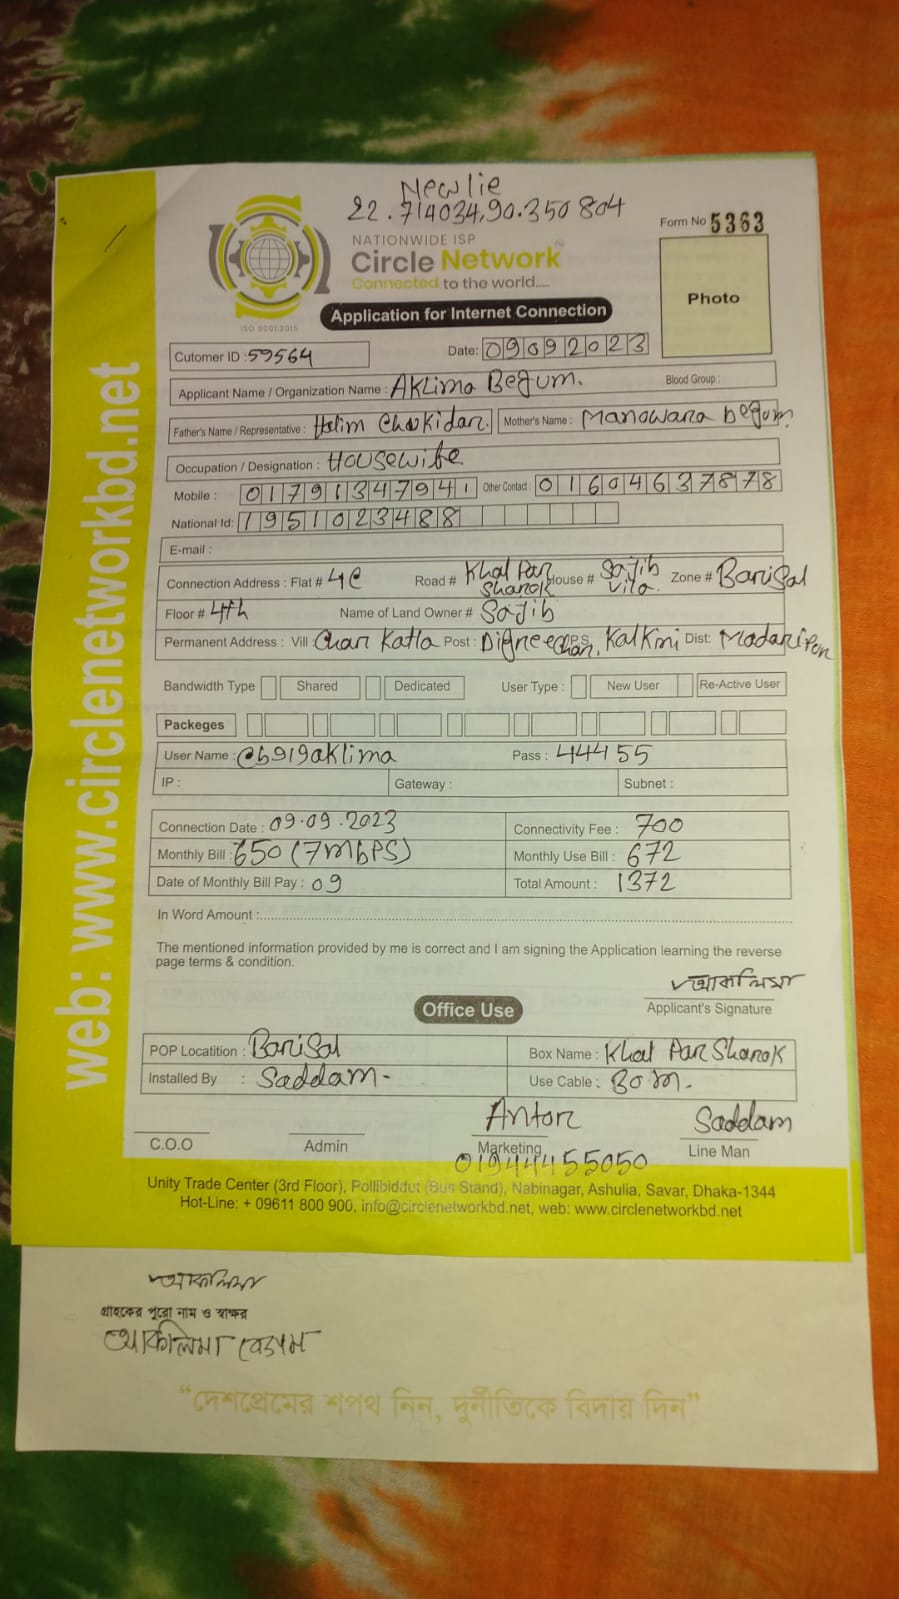 Newlie
22.714034,90.350804
Form No 5363
NATIONWIDE ISP
Circle Network
Connected to the world.....
Photo
ISO 9001:2015
Application for Internet Connection
Cutomer ID : 59564 Date: 09092023
Applicant Name / Organization Name : Aklima Begum. Blood Group :
Father's Name / Representative : Halim Chokidar. Mother's Name : Manowara begum.
Occupation / Designation : Housewife
Mobile : 01791347941 Other Contact : 01604637878
National Id: 1951023488
E-mail :
Connection Address : Flat # 4C Road # Khal Par Sharok House # Sajib Vila. Zone # Barisal
Floor # 4th Name of Land Owner # Sajib
Permanent Address : Vill Char Katla Post : Digree Char, PS Kalkini Dist: Madaripur
Bandwidth Type Shared Dedicated User Type : New User Re-Active User
Packeges
User Name : @6919aklima Pass : 44455
IP : Gateway : Subnet :
Connection Date : 09.09.2023 Connectivity Fee : 700
Monthly Bill : 650 (7mbps) Monthly Use Bill : 672
Date of Monthly Bill Pay : 09 Total Amount : 1372
In Word Amount :
The mentioned information provided by me is correct and I am signing the Application learning the reverse
page terms & condition.
আকলিমা
Applicant's Signature
Office Use
POP Locatition : Barisal Box Name : Khal Par Sharok
Installed By : Saddam- Use Cable : 30m.
Anton Saddam
C.O.O Admin Marketing Line Man
01944455050
Unity Trade Center (3rd Floor), Pollibiddut (Bus Stand), Nabinagar, Ashulia, Savar, Dhaka-1344
Hot-Line: + 09611 800 900, info@circlenetworkbd.net, web: www.circlenetworkbd.net
web: www.circlenetworkbd.net
আকলিমা
গ্রাহকের পুরো নাম ও স্বাক্ষর
আকলিমা বেগম
“দেশপ্রেমের শপথ নিন, দুর্নীতিকে বিদায় দিন”